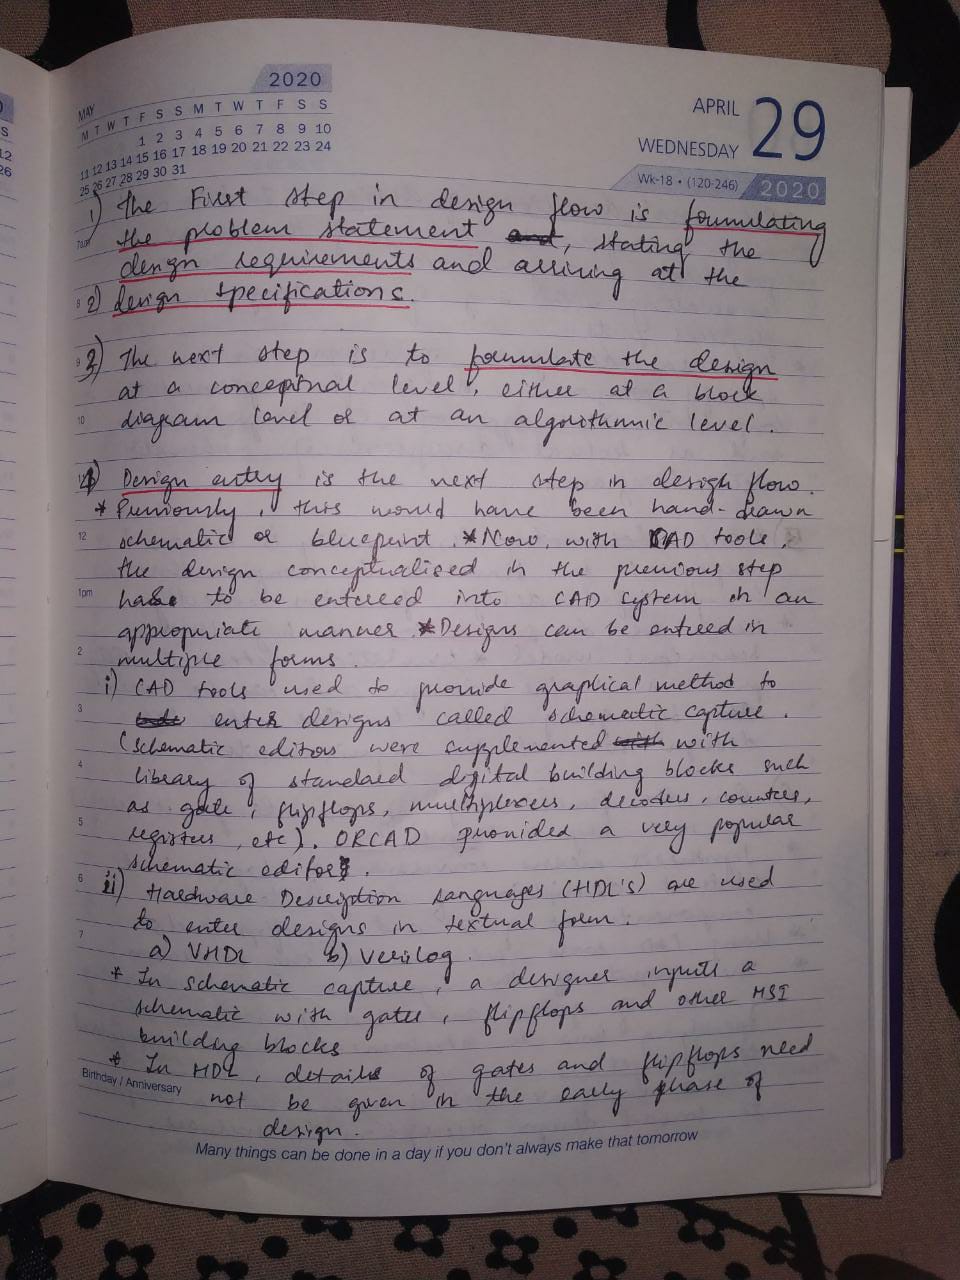 MAY 2020
M T W T F S S M T W T F S S
1 2 3 4 5 6 7 8 9 10
11 12 13 14 15 16 17 18 19 20 21 22 23 24
25 26 27 28 29 30 31
APRIL 29
WEDNESDAY
Wk-18 • (120-246) 2020
1) The First step in design flow is formulating
7am the problem statement and, stating the
design requirements and arriving at the
8 2) design specifications.
9 3) The next step is to formulate the design
at a conceptual level, either at a block
10 diagram level or at an algorithmic level.
4) Design entry is the next step in design flow.
* Previously, this would have been hand-drawn
12 schematic or blueprint. * Now, with CAD tools,
the design conceptualised in the previous step
1pm has to be entered into CAD system in an
appropriate manner * Designs can be entred in
2 multiple forms.
i) CAD tools used to provide graphical method to
3 enter designs called schematic capture.
(schematic editors were supplemented with with
4 library of standard digital building blocks such
as gate, flipflops, multiplexers, decoders, counters,
5 registers, etc). ORCAD provided a very popular
schematic editor.
6 ii) Hardware Description Languages (HDL's) are used
to enter designs in textual form.
7 a) VHDL b) Verilog.
* In schematic capture, a designer inputs a
schematic with gates, flipflops and other MSI
building blocks
* In HDL, details of gates and flipflops need
Birthday / Anniversary not be given in the early phase of
design.
Many things can be done in a day if you don't always make that tomorrow